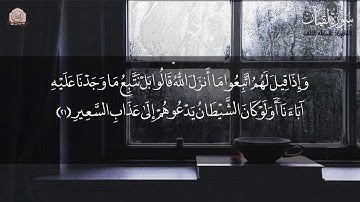 سورة لقمان
وَإِذَا قِيلَ لَهُمُ اتَّبِعُوا مَا أَنزَلَ اللَّهُ قَالُوا بَلْ نَتَّبِعُ مَا وَجَدْنَا عَلَيْهِ
آبَاءَنَا أَوَلَوْ كَانَ الشَّيْطَانُ يَدْعُوهُمْ إِلَىٰ عَذَابِ السَّعِيرِ (٢١)